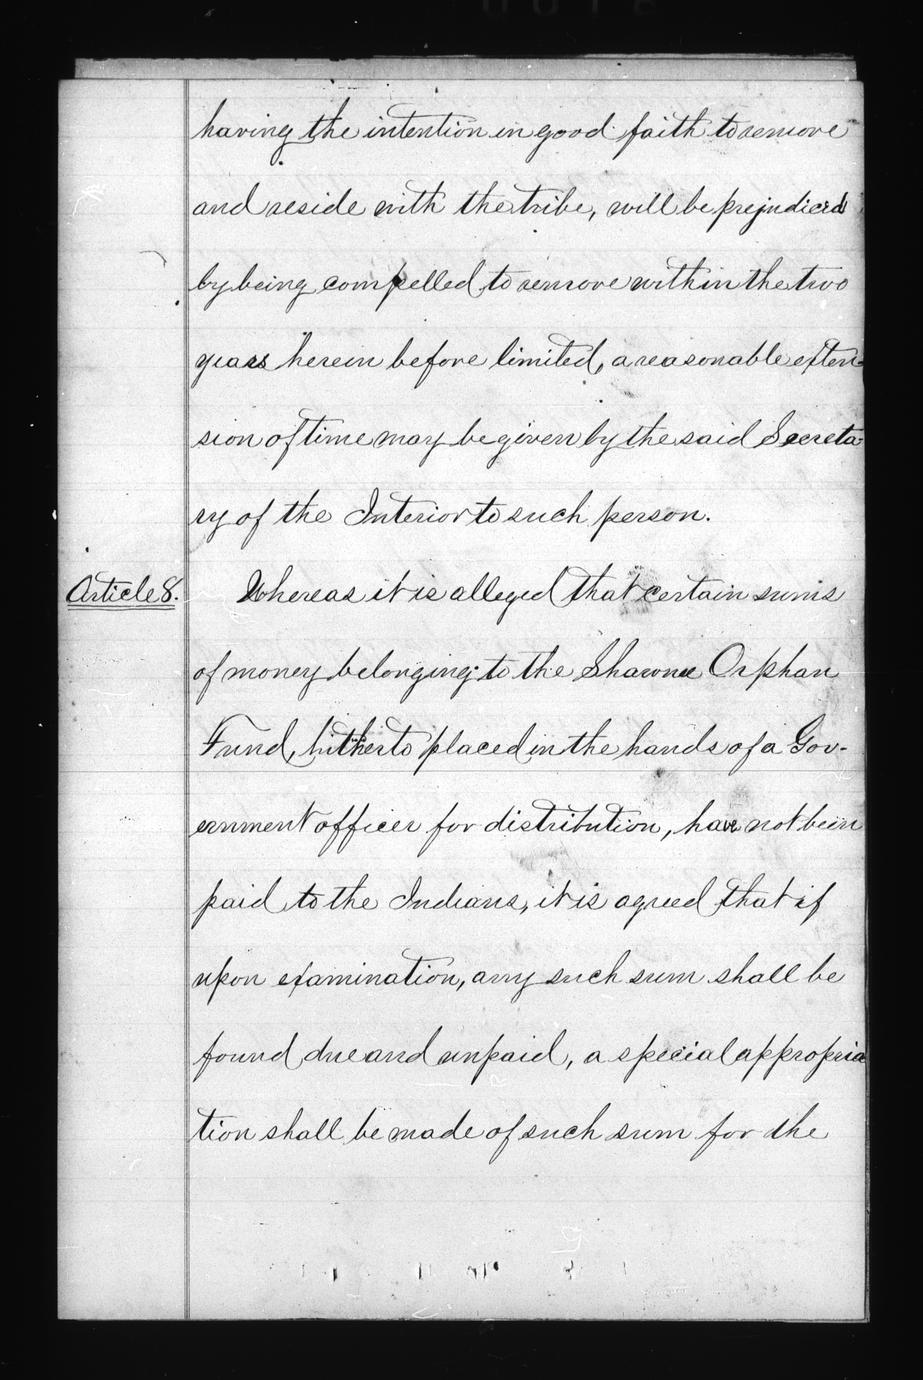 having the intention in good faith to remove
and reside with the tribe, will be prejudiced
by being compelled to remove within the two
years herein before limited, a reasonable exten-
sion of time may be given by the said Secreta-
ry of the Interior to such person.
Article 8. Whereas it is alleged that certain sums
of money belonging to the Shawnee Orphan
Fund, hitherto placed in the hands of a Gov-
ernment officer for distribution, have not been
paid to the Indians, it is agreed that if
upon examination, any such sum shall be
found due and unpaid, a special appropria
tion shall be made of such sum for the